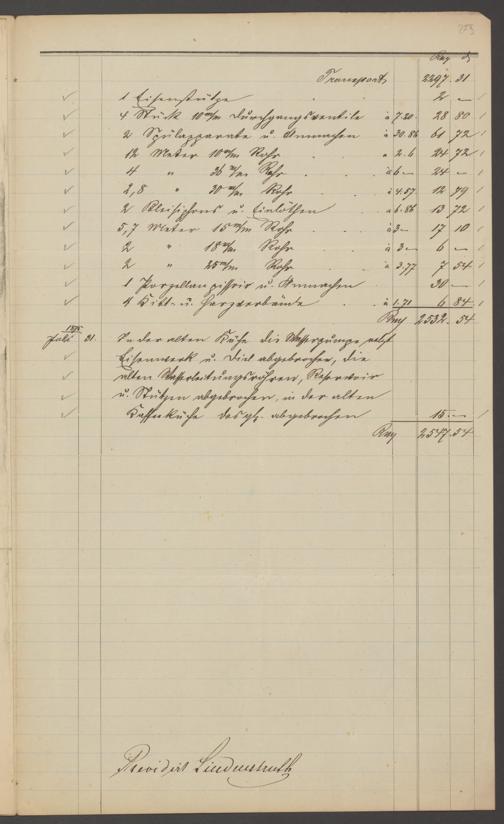 Rm ₰
Transport 2297. 31
1 Eisenstütze 2 —
4 Stück 10 m/m Durchgangsventile à 7.20 28 80
2 Spülapparate u. Anmachen à 30.86 61 72
12 Meter 10 m/m Rohr à 2.6 24 72
4 " 26 m/m Rohr à 6 — 24 —
2,8 " 20 m/m Rohr à 4.57 12 79
2 Bleisiphons u. Einlöthen à 6.86 13 72
5,7 Meter 15 m/m Rohr à 3 — 17 10
2 " 18 m/m Rohr à 3 — 6 —
2 " 25 m/m Rohr à 3.77 7 54
1 Porzellanpissoir u. Anmachen 30 —
4 Kitt- u. Harzverbände à 1.71 6 84
Rm 2532. 54
Juli 31. In der alten Küche die Wasserpumpe nebst
Eisenwerk u. Diel abgebrochen, die
alten Wasserleitungsröhren, Reservoir
u. Stützen abgebrochen, in der alten
Kaffeeküche desgl. abgebrochen 15. —
Rm 2547. 54
Revidirt Lindenstruth